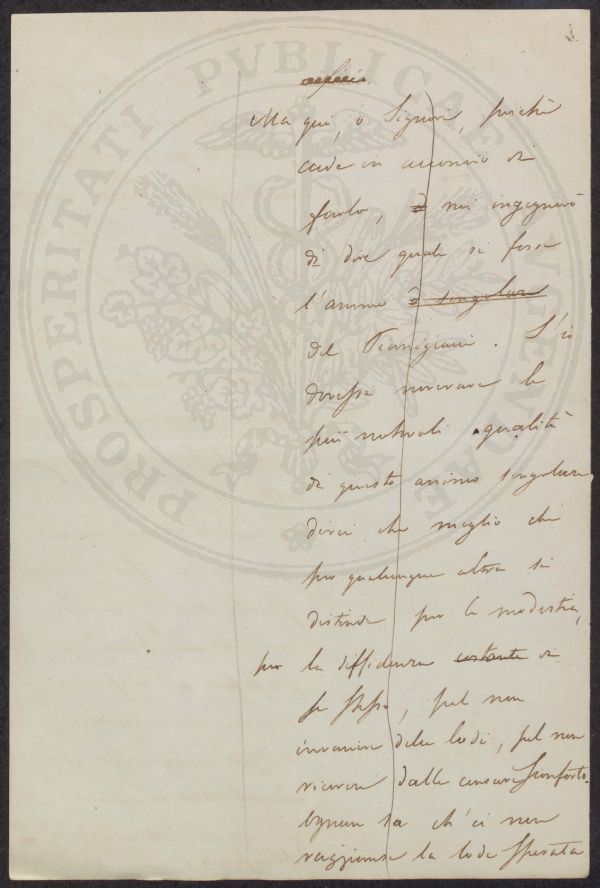 Ma qui, o Signori, poichè
cade in acconcio di
farlo, mi ingegnerò
di dire quale si fosse
l'animo e singolare
del Pianigiani. S'io
dovessi noverare le
più notevoli qualità
di questo animo singolare
direi che meglio che
per qualunque altra si
distinse per la modestia,
per la diffidenza costante di
se stesso, pel non
invanire delle lodi, pel non
ricevere dalle censure sconforto.
Ognun sa ch'ei non
raggiunse la lode sperata
PROSPERITATI PVBLICAE AVGENDAE